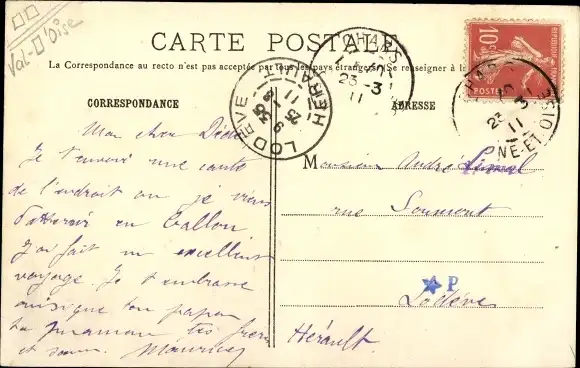 Val-D'Oise
CARTE POSTALE
La Correspondance au recto n'est pas acceptée par tous les pays étrangers. Se renseigner à la
CORRESPONDANCE
ADRESSE
Mon cher Dédé
Je t'envoie une carte
de l'endroit où je viens
d'atterrir en ballon
J'ai fait un excellent
voyage. Je t'embrasse
ainsi que ton papa
ta maman tes frères
et soeur. Maurice
Monsieur André
rue Soumont
Lodève
Hérault
P
LODEVE
HERAULT
23-3
11
23-3
11
10c
POSTES